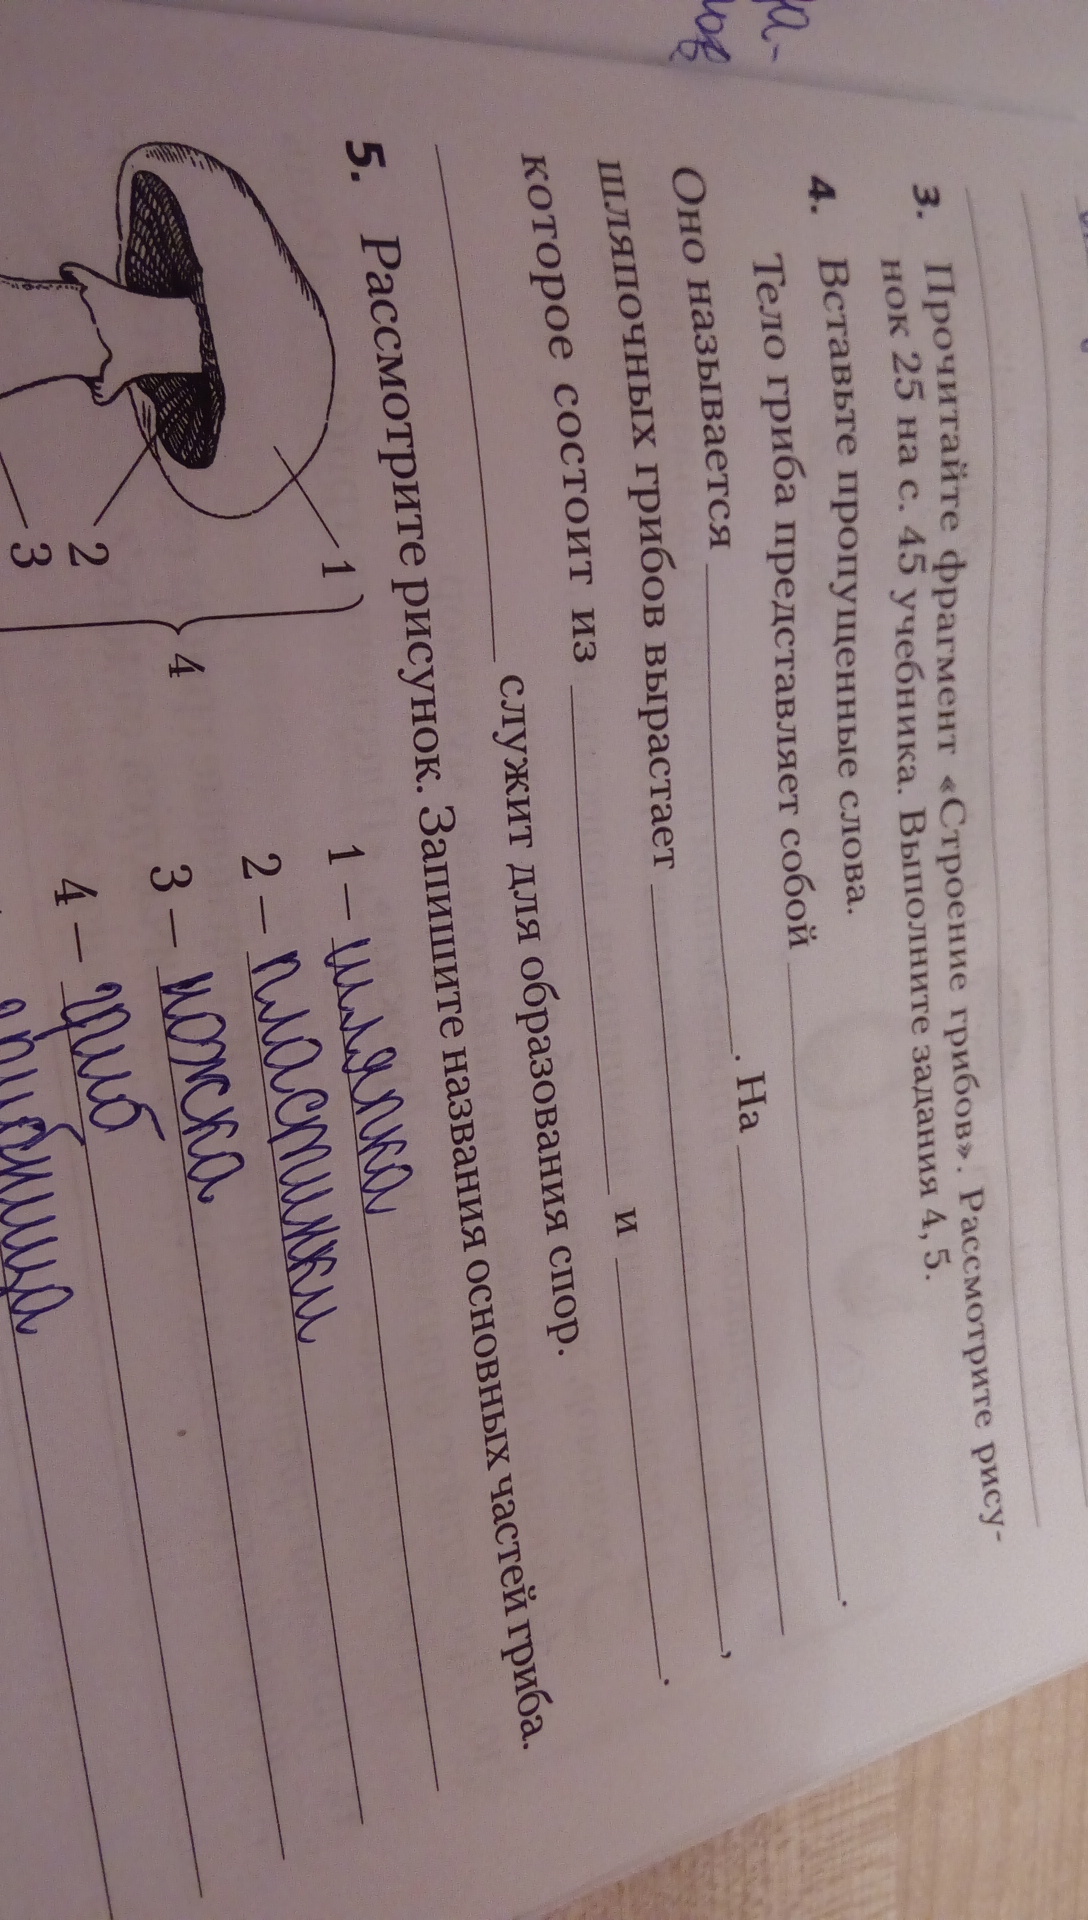 3. Прочитайте фрагмент «Строение грибов». Рассмотрите рису-
нок 25 на с. 45 учебника. Выполните задания 4, 5.
4. Вставьте пропущенные слова.
Тело гриба представляет собой ______.
Оно называется ______. На ______
шляпочных грибов вырастает ______,
которое состоит из ______ и ______.
______ служит для образования спор.
5. Рассмотрите рисунок. Запишите названия основных частей гриба.
1
2
3
4
1 – шляпка
2 – пластинки
3 – ножка
4 – гриб
грибница